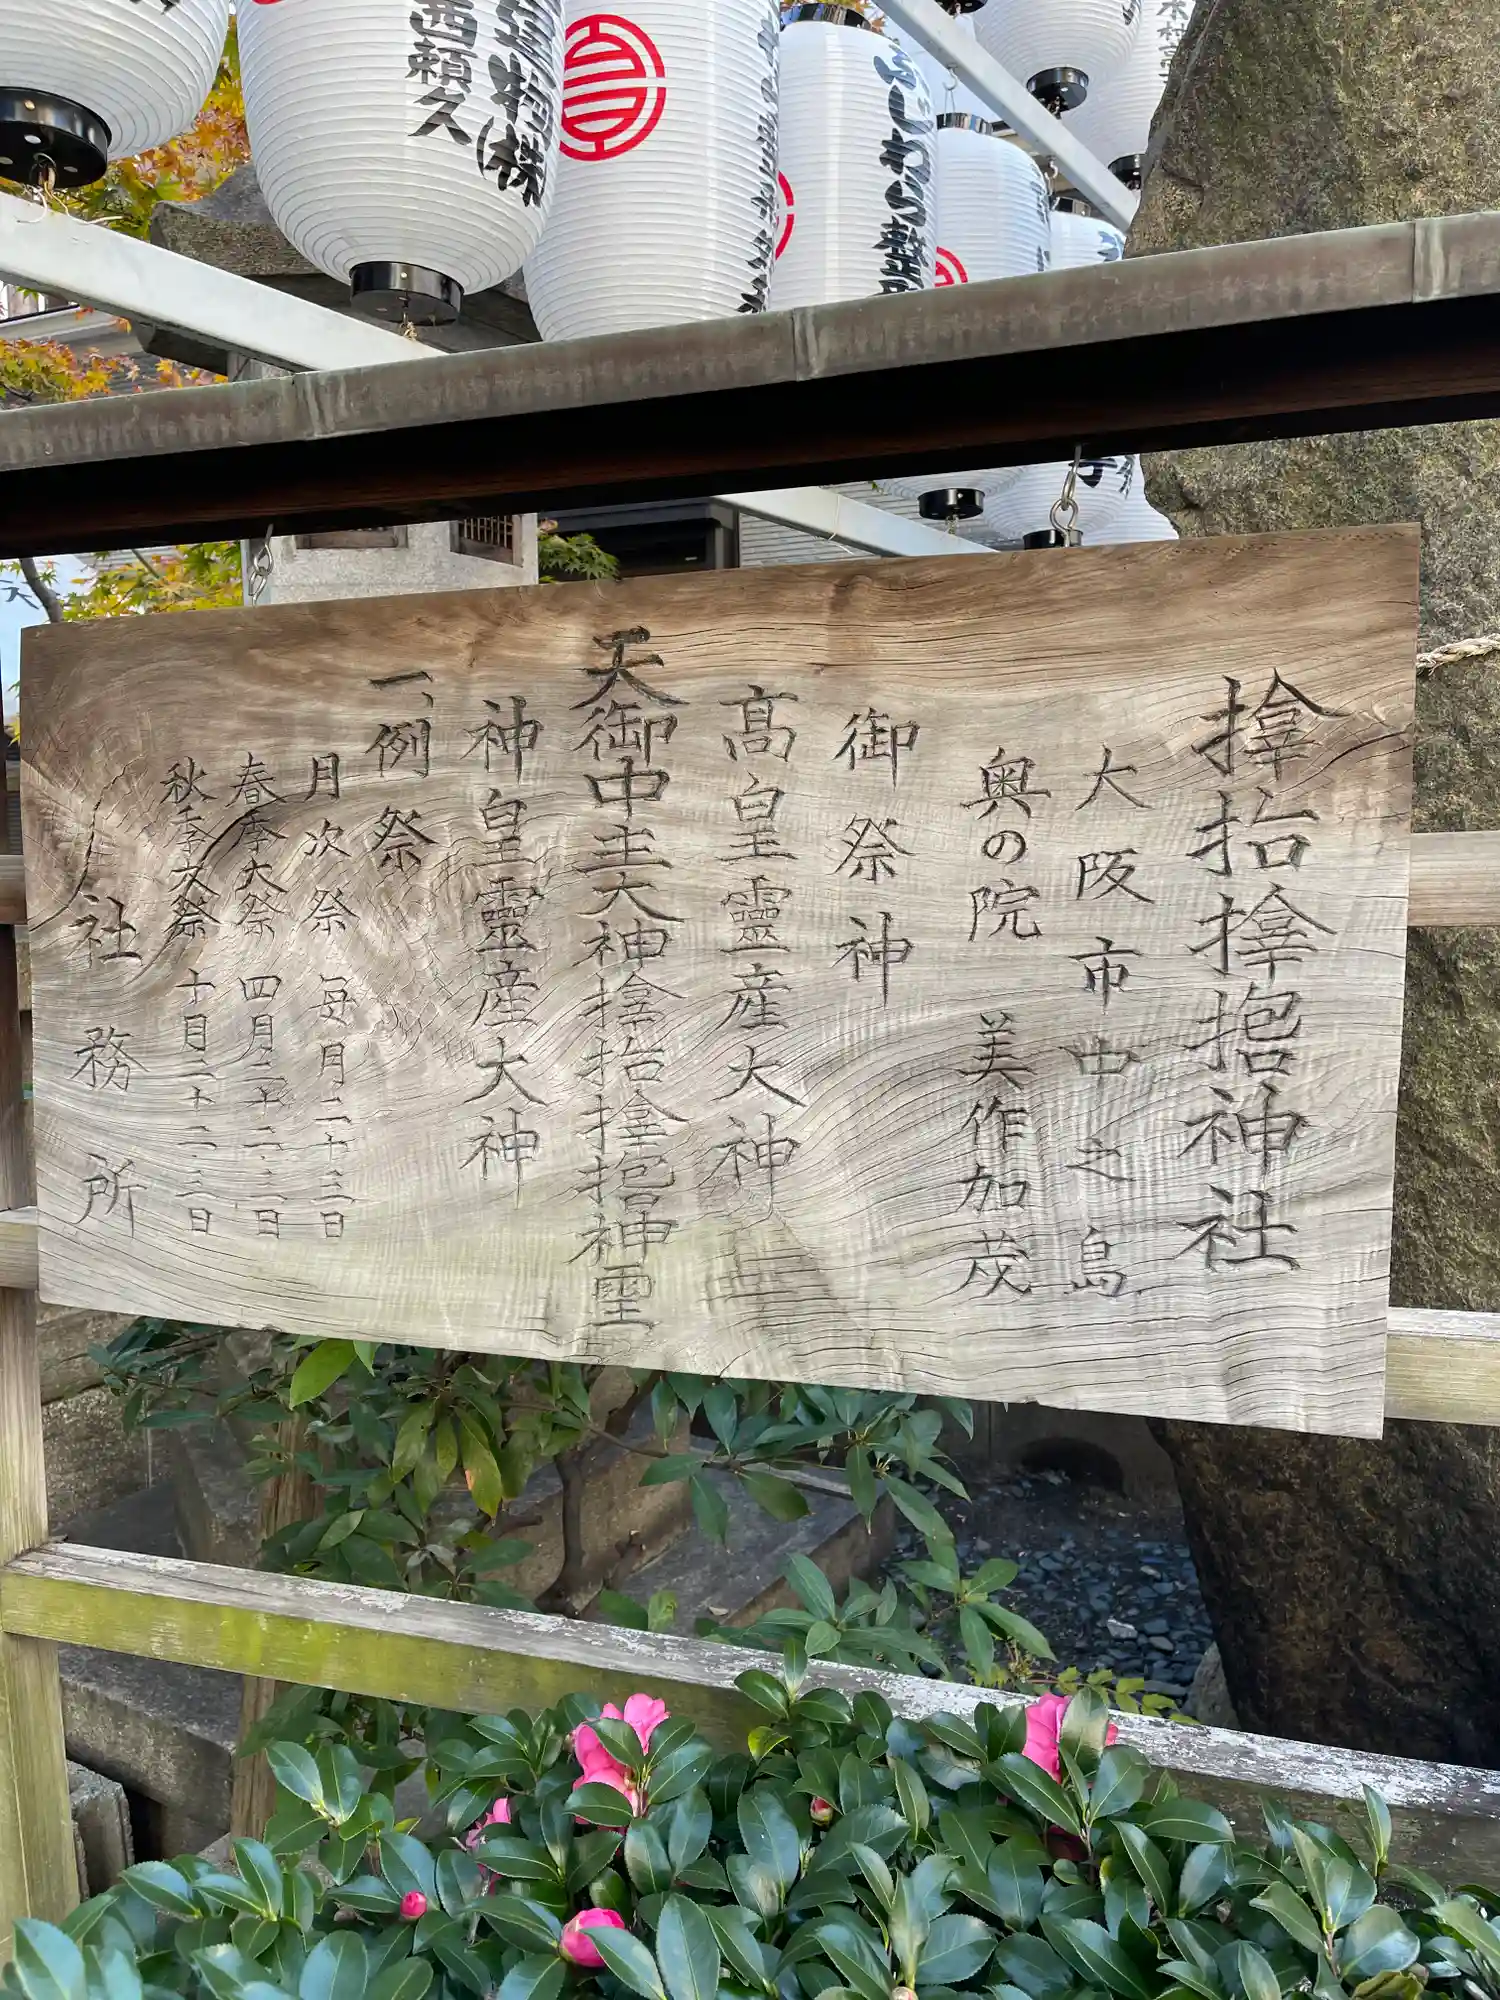 神社
大阪市中之島
奥の院 美作加茂
御祭神
高皇靈産大神
天御中主大神 神霊
神皇靈産大神
一、例祭
月次祭 毎月二十三日
春季大祭 四月二十二・三日
秋季大祭 十月二十二・三日
社務所
西頼久